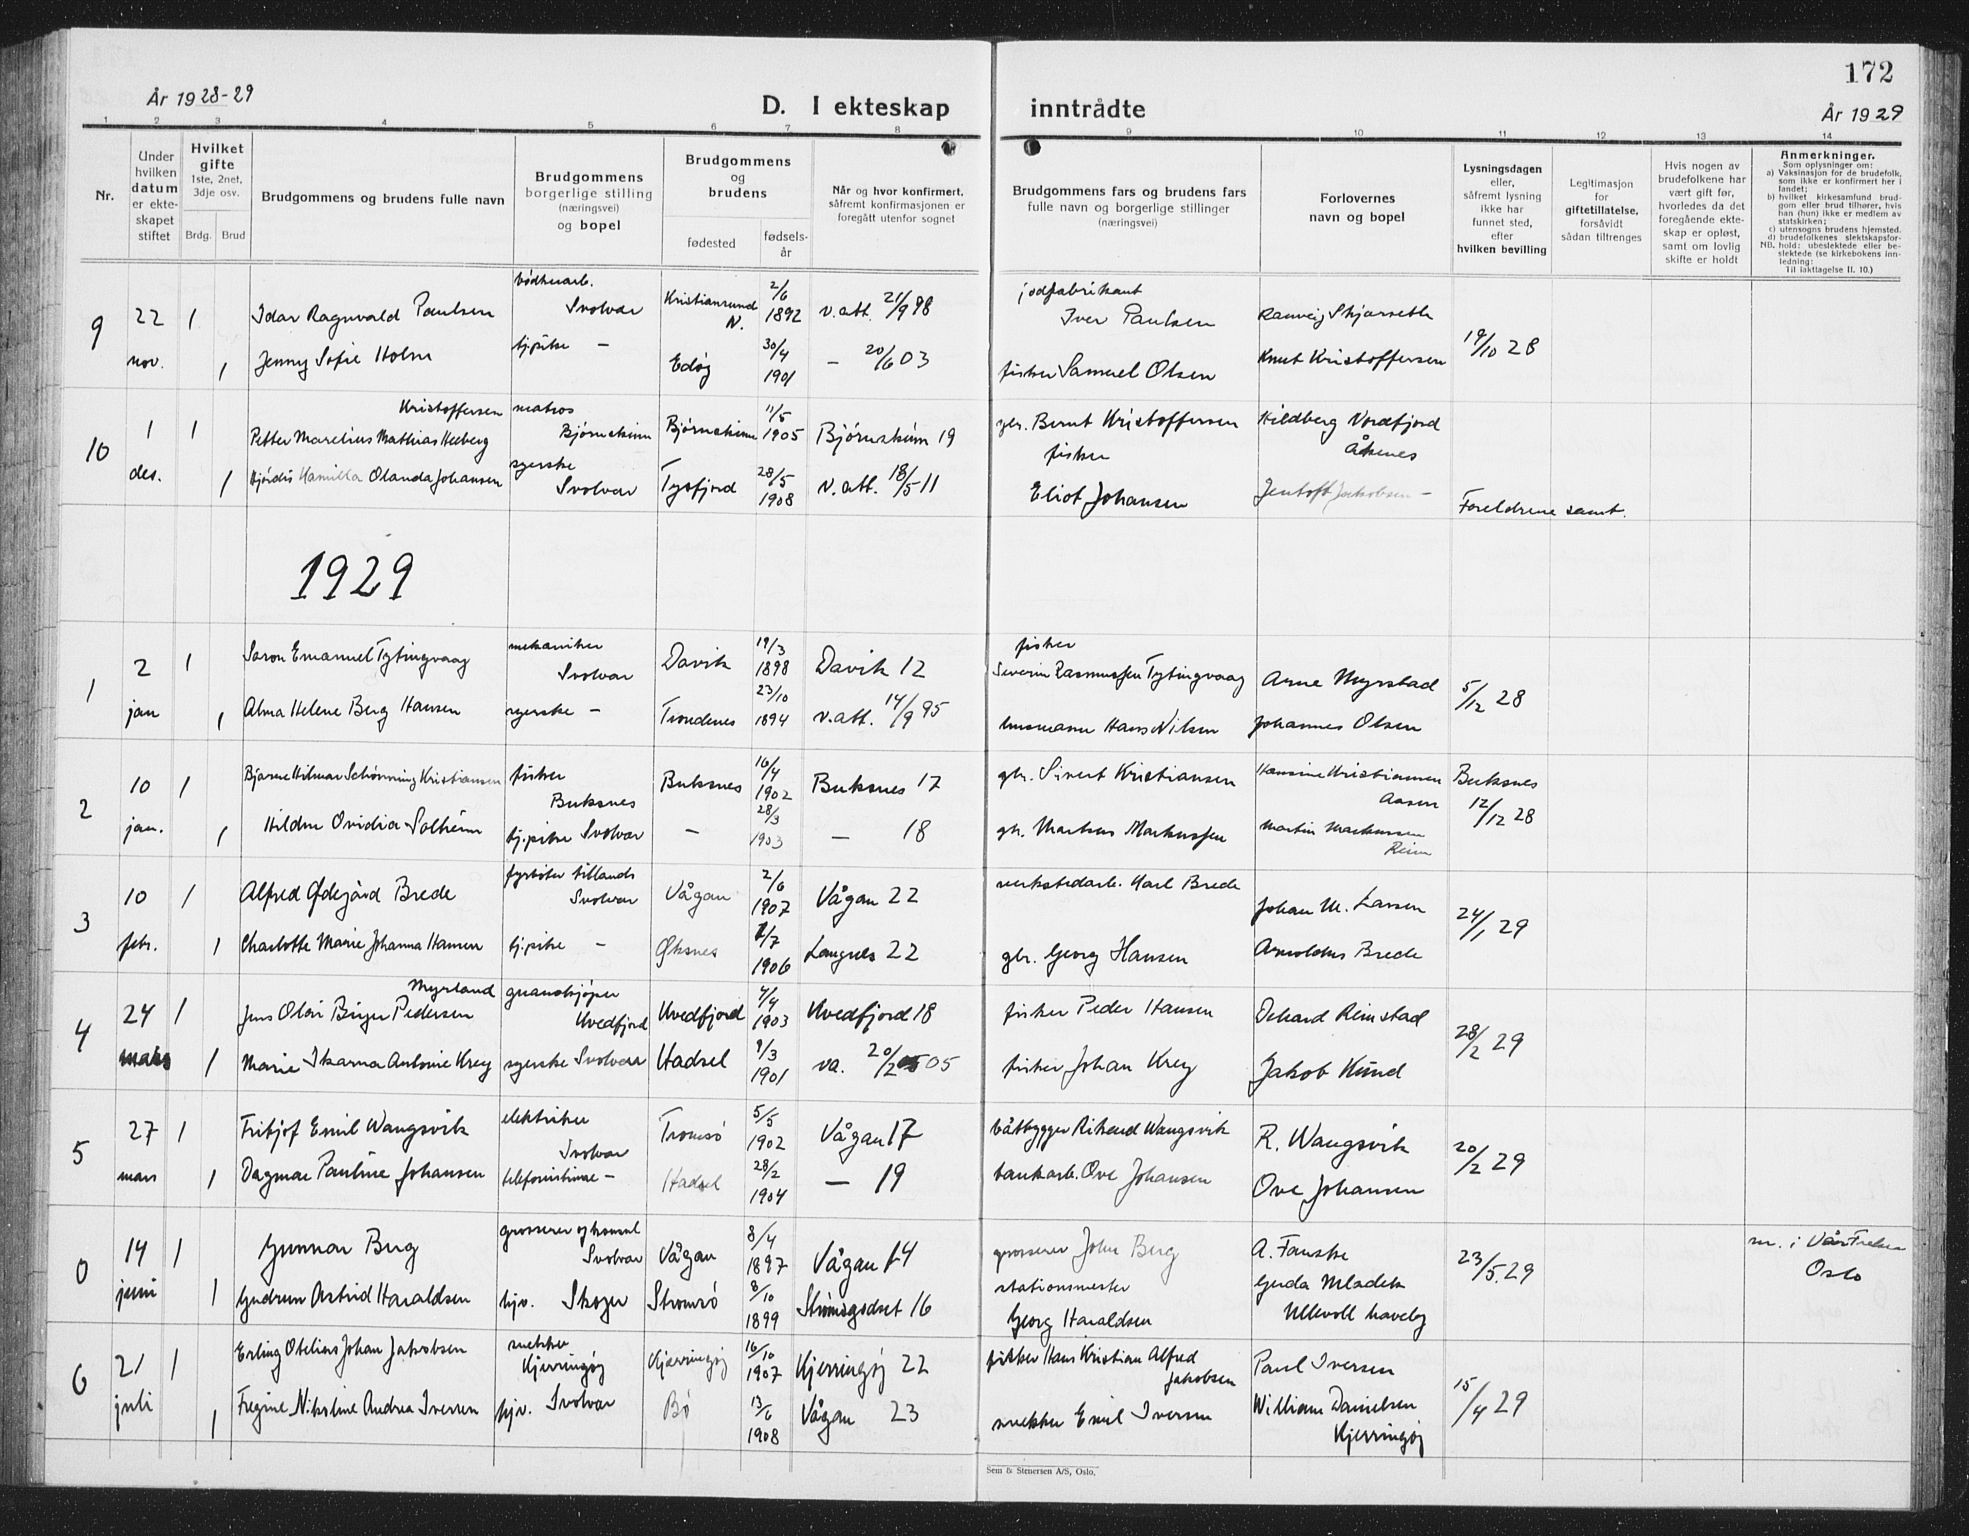 172
År 1928-29
D. I ekteskap inntrådte
År 1929
1 2 3 4 5 6 7 8 9 10 11 12 13 14
Nr.
Under hvilken datum er ekte-skapet stiftet
Hvilket gifte
1ste, 2net, 3dje osv.
Brdg. Brud
Brudgommens og brudens fulle navn
Brudgommens borgerlige stilling (næringsvei) og bopel
Brudgommens og brudens
fødested
fødsels-år
Når og hvor konfirmert, såfremt konfirmasjonen er foregått utenfor sognet
Brudgommens fars og brudens fars fulle navn og borgerlige stillinger (næringsvei)
Forlovernes navn og bopel
Lysningsdagen eller, såfremt lysning ikke har funnet sted, efter hvilken bevilling
Legitimasjon for giftetillatelse, forsåvidt sådan tiltrenges
Hvis nogen av brudefolkene har vært gift før, hvorledes da det foregående ekte-skap er opløst, samt om lovlig skifte er holdt
Anmerkninger.
Som oplysninger om:
a) Vaksinasjon for de brudefolk, som ikke er konfirmert her i landet;
b) hvilket kirkesamfund brud-gom eller brud tilhører, hvis han (hun) ikke er medlem av statskirken;
c) utensogns brudens hjemsted.
d) brudefolkenes slektskapsfor-hold: ubeslektede eller be-slektede (se kirkebokens inn-ledning:
NB.
Til iakttagelse II. 10.)
9 22 nov. 1 Idar Ragnvald Paulsen Svolvær Kristiansund N. 2/6 1892 v.att. 21/9 98 Iver Paulsen 19/10 28
1 Jenny Sofie Holm tj.pike — Edøy 30/4 1901 — 20/6 03 fisker Samuel Olsen Knut Kristoffersen
10 1 des. 1 Kristoffersen
Petter Marelius Mathias Heeberg matros Bjørnskinn Bjørnskinn 11/5 1905 Bjørnskinn 19 gbr. Bernt Kristoffersen Hildberg Nordfjord Åknes
1 Hjørdis Hamilla Olanda Johansen syerske Svolvær Tysfjord 28/5 1908 v.att. 18/5 11 fisker Eliot Johansen Jentoft Jakobsen — Foreldrene samt.
1929
1 2 jan 1 Emanuel Tytingvaag mekaniker Svolvær Davik 19/3 1898 Davik 12 fisker Severin Rasmussen Tytingvaag Arne Myrstad 5/12 28
1 Alma Helene Berg Hansen syerske — Trondenes 23/10 1894 v.att. 14/9 95 husmann Hans Nilsen Johannes Olsen
2 10 jan. 1 Bjarne Hilmar Schønning Kristiansen fisker Buksnes Buksnes 16/4 1902 Buksnes 17 gbr. Sivert Kristiansen Hansine Kristiansen Aasen Buksnes 12/12 28
1 Hildur Ovidia Solheim tj.pike Svolvær — 28/3 1903 — 18 gbr. Markus Markussen Martin Markussen
3 10 febr. 1 Alfred Ødegård Brede fyrbøter Svolvær Vågan 2/6 1907 Vågan 22 verkstedarb. Karl Brede Johan M. Larsen 24/1 29
1 Charlotte Marie Johanna Hansen tj.pike — Øksnes /7 1906 Langnes 22 gbr. Georg Hansen Arnoldus Brede
4 24 mars 1 Myrland
Jens Olai Birger Pedersen guanokjøper Hvedfjord Hvedfjord 4/4 1903 Hvedfjord 18 fisker Peder Hansen Reinstad 28/2 29
1 Marie Ikarna Antonie Krey syerske Svolvær Hadsel 9/3 1901 va. 20/2 05 fisker Johan Krey Jakob
5 27 mars 1 Fritjof Emil Wangsvik elektriker Svolvær Tromsø 5/5 1902 Vågan 17 båtbygger Rikard Wangsvik R. Wangsvik 20/2 29
1 Dagmar Pauline Johansen telefonistinne — Hadsel 28/2 1904 — 19 bankarb. Ove Johansen Ove Johansen
0 14 juni 1 Gunnar Berg grosserer og konsul Svolvær Vågan 8/4 1897 Vågan 14 grosserer John Berg A. Fauske 23/5 29 m. i Vår Frelser Oslo
1 Gudrun Astrid Haraldsen hjv. Skoger Strømsø 8/10 1899 Strømsgodset 16 stationsmester Georg Haraldsen Gerda Mladek Ullevoll haveby
6 21 juli 1 Erling Otelius Johan Jakobsen snekker Kjerringøy Kjerringøy 16/10 1907 Kjerringøy 22 fisker Hans Kristian Alfred Jakobsen Paul Iversen 15/4 29
1 Fregine Nikoline Andrea Iversen hjv. Svolvær Bø 13/6 1908 Vågan 23 snekker Emil Iversen William Danielsen Kjerringøy
Sem & Stenersen A/S, Oslo.